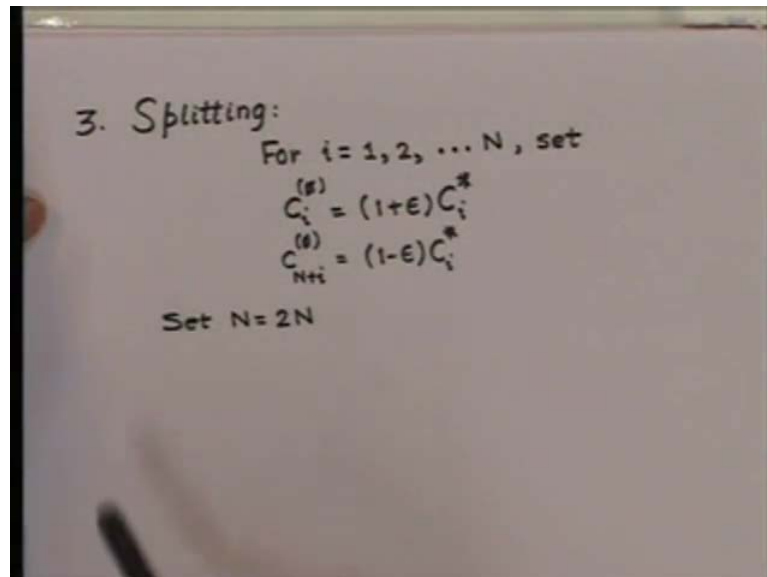 3. Splitting:
For i = 1, 2, ... N, set
C_i^(0) = (1+ε)C_i^*
C_{N+i}^(0) = (1-ε)C_i^*
Set N = 2N